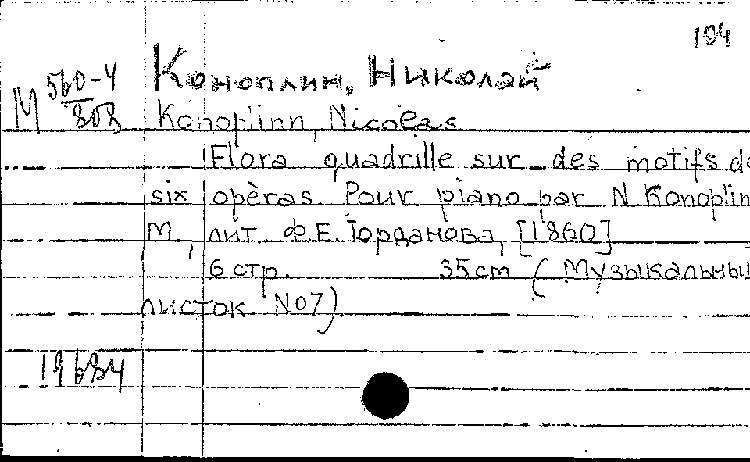 104
М 560-4
808
Коноплин, Николай
Konoplinn, Nicolas
Flora quadrille sur des motifs de
six opèras. Pour piano par N. Konoplin
М., лит. Ф.Е. Іорданова, [1860]
6 стр. 35 cm (Музыкальны
листок No 7)
19684